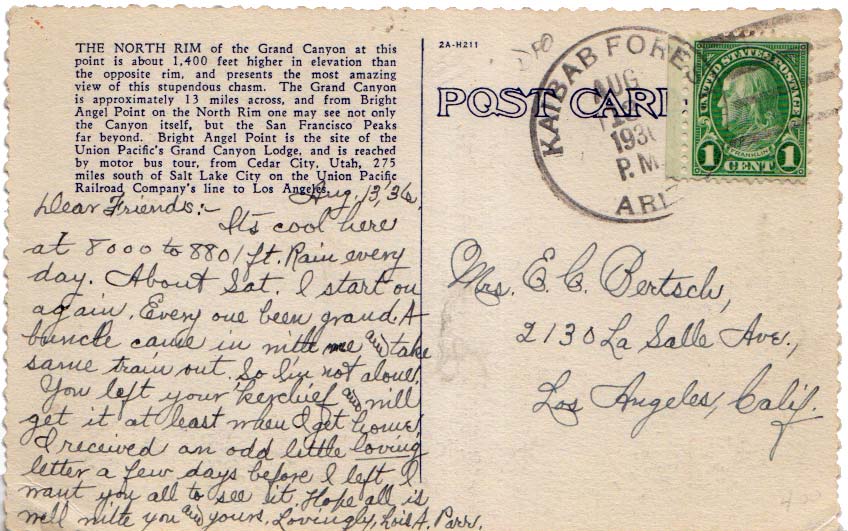 THE NORTH RIM of the Grand Canyon at this
point is about 1,400 feet higher in elevation than
the opposite rim, and presents the most amazing
view of this stupendous chasm. The Grand Canyon
is approximately 13 miles across, and from Bright
Angel Point on the North Rim one may see not only
the Canyon itself, but the San Francisco Peaks
far beyond. Bright Angel Point is the site of the
Union Pacific's Grand Canyon Lodge, and is reached
by motor bus tour, from Cedar City, Utah, 275
miles south of Salt Lake City on the Union Pacific
Railroad Company's line to Los Angeles.
Aug. 13, '36,
Dear Friends:-
It's cool here
at 8000 to 8801 ft. Rain every
day. About Sat. I start on
again. Every one been grand. A
bunch came in with me and take
same train out. So I'm not alone.
You left your kerchief and will
get it at least when I get home.
I received an odd little loving
letter a few days before I left I
want you all to see it. Hope all is
well with you and yours. Lovingly, Lois A. Parr.
2A-H211
POST CAR
KAIBAB FORES
AUG
1936
P.M
ARI
UNITED STATES POSTAGE
FRANKLIN
1 CENT 1
Mrs. E. C. Bertsch,
2130 La Salle Ave.,
Los Angeles, Calif.